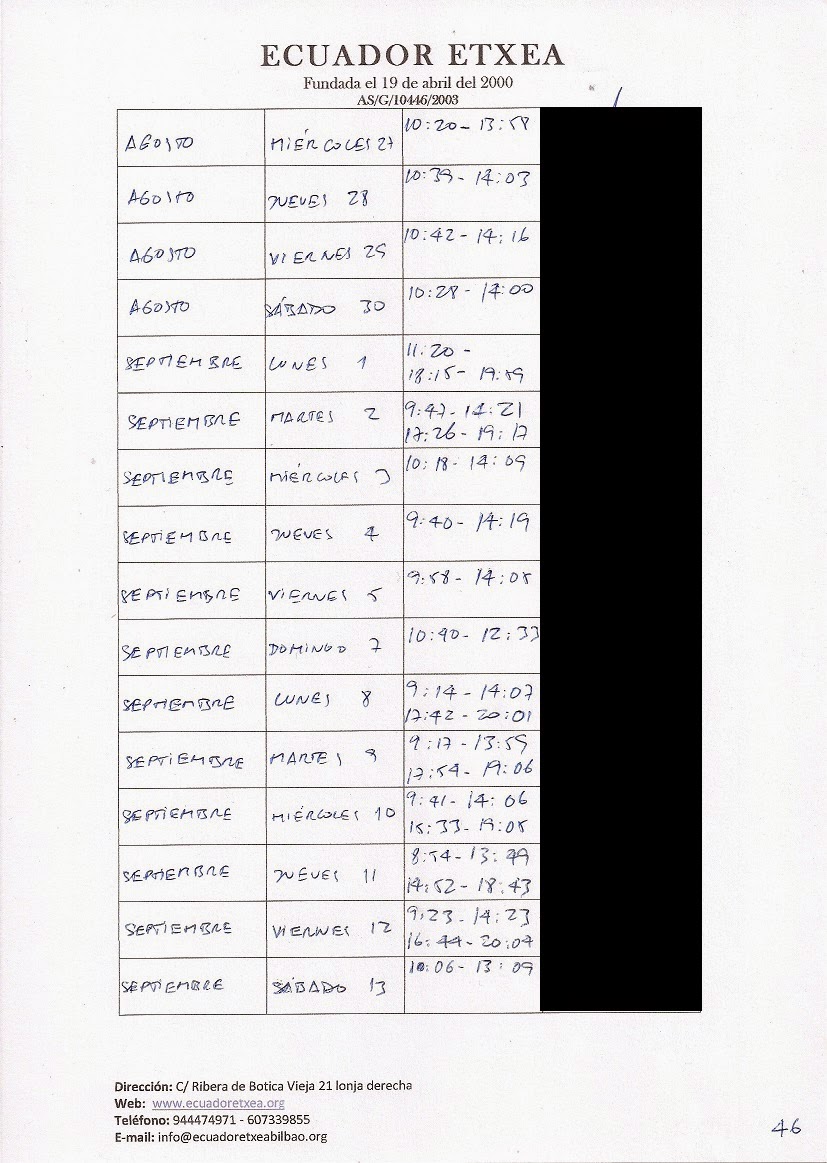 ECUADOR ETXEA
Fundada el 19 de abril del 2000
AS/G/10446/2003
AGOSTO MIÉRCOLES 27 10:20 - 13:58
AGOSTO JUEVES 28 10:39 - 14:03
AGOSTO VIERNES 29 10:42 - 14:16
AGOSTO SÁBADO 30 10:28 - 14:00
SEPTIEMBRE LUNES 1 11:20 -
18:15 - 19:59
SEPTIEMBRE MARTES 2 9:47 - 14:21
17:26 - 19:17
SEPTIEMBRE MIÉRCOLES 3 10:18 - 14:09
SEPTIEMBRE JUEVES 4 9:40 - 14:19
SEPTIEMBRE VIERNES 5 9:58 - 14:05
SEPTIEMBRE DOMINGO 7 10:40 - 12:33
SEPTIEMBRE LUNES 8 9:14 - 14:07
17:42 - 20:01
SEPTIEMBRE MARTES 9 9:17 - 13:59
17:54 - 19:06
SEPTIEMBRE MIÉRCOLES 10 9:41 - 14:06
15:33 - 19:05
SEPTIEMBRE JUEVES 11 8:54 - 13:49
14:52 - 18:43
SEPTIEMBRE VIERNES 12 9:23 - 14:23
16:44 - 20:04
SEPTIEMBRE SÁBADO 13 10:06 - 13:09
Dirección: C/ Ribera de Botica Vieja 21 lonja derecha
Web: www.ecuadoretxea.org
Teléfono: 944474971 - 607339855
E-mail: info@ecuadoretxeabilbao.org
46